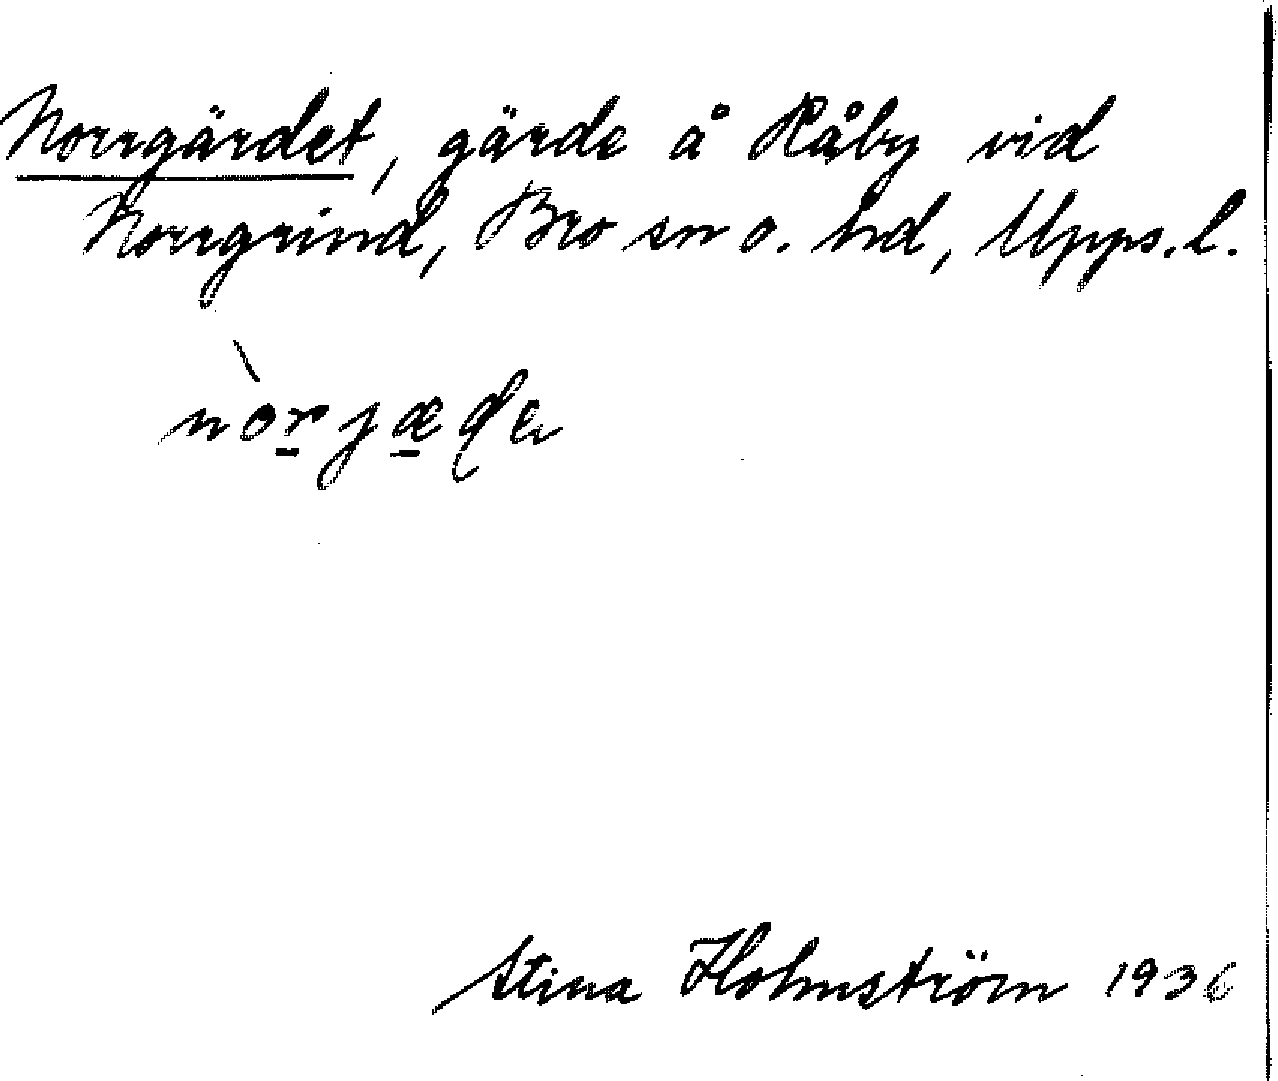 Norrgärdet, gärde å Råby vid
Norrgrind, Bro sn o. hd, Upps. l.
nòrjæɖe
Stina Holmström 1936